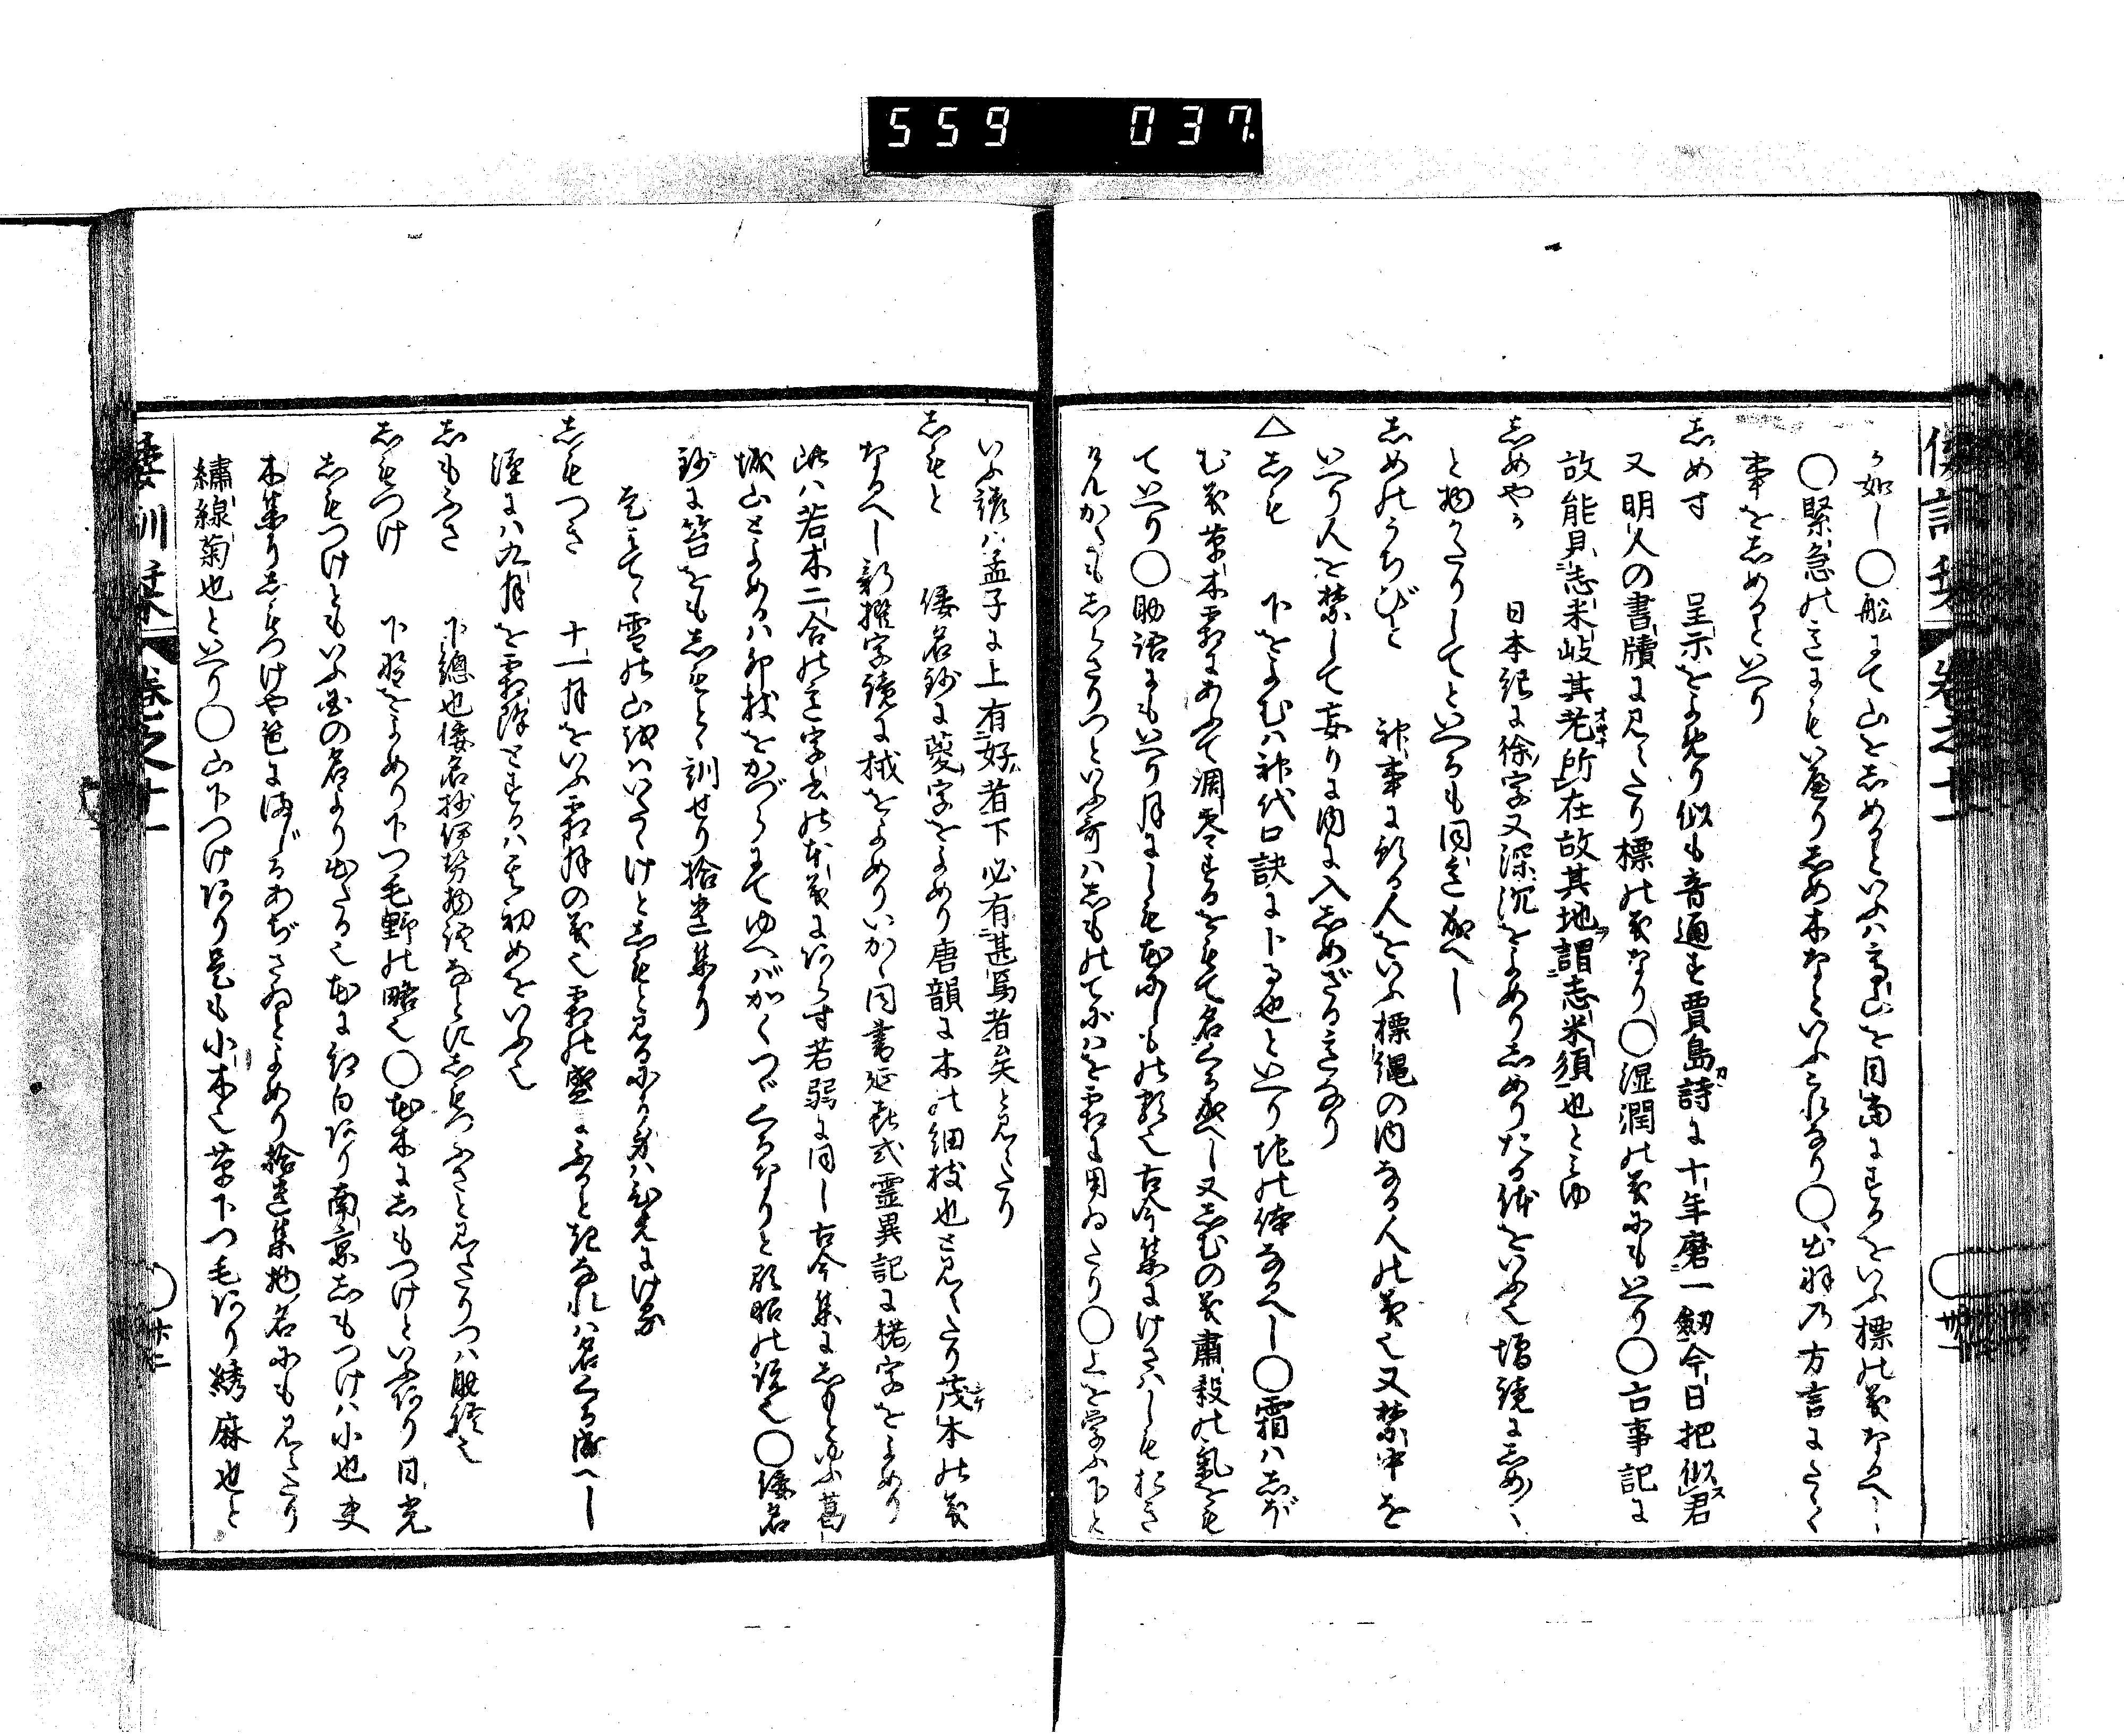 559 037
倭訓栞 巻之十一
か如し〇舩にて山をしめるといふハ高山を目當にするをいふ標の義なるへし
〇緊急の意にもいへりしめ木なといふこれなり〇出羽乃方言にたく
事をしめると いへり
しめす 呈示をよめり似も音通す賈島詩に十年磨一劔今日把似君
又明人の書牘に見えたり標の義なり〇湿潤の義にもいへり〇古事記に
故能見志米岐其老所在故其地謂志米須也とみゆ
しめやか 日本紀に徐字又深沉をよめりしめりたる体をいふ也増鏡にしめ〱
と物かたりしてといへるも同意成へし
しめのうちびと 神事に預る人をいふ標縄の内なる人の義也又禁中を
いへり人を禁して妄りに内に入しめざる意なり
△しも 下をよむハ神代口訣に下る也といへり地の体なるへし〇霜ハしぼ
む義草木霜にあふて凋零するをもて名くる成へし又しむの義肅殺の氣をも
ていへり〇助語にもいへり月にしも花にしもの類也古今集にけさハしもおき
けんかたもしらさりつといふ哥ハしものてにハを霜に用ゐたり〇上を学ふ下と
いふ諺ハ孟子に上有好者下必有甚焉者矣と見えたり
しもと 倭名鈔に葼字をよめり唐韻に木の細枝也と見えたり茂木の義
なるへし新撰字鏡に㭜をよめりいかゝ同書延㐂式霊異記に楉字をよめり
此ハ若木二合の意字書の本義にハあらす若弱に同し古今集にしもとゆふ葛
城山とよめるハ卯杖をかづらにてゆへバかくつゞくるなりと顕昭の説也〇倭名
鈔に笞をもしもとゝ訓せり拾遺集り
老はてゝ雪の山をハいたゝけとしもと見るにそ身ハひえにける
しもつき 十一月をいふ霜月の義也霜の盛にふると㐂なれハ名くる成へし
漢にハ九月を霜降とするハ其初めをいふ也
しもふさ 下總也倭名抄伊勢物語なとにしもつふさと見えたりつハ助語也
しもつけ 下野をよめり下つ毛野の略也〇花木にしもつけといふあり日光
しもつけともいふ國の名より出たる也花に紅白あり南京しもつけハ小也夫
木集りしもつけや色にまじるあぢさゐとよめり拾遺集物名にも見えたり
繡線菊也といへり〇山下つけあり是も小木也草下つ毛あり綉麻也と
倭訓栞 巻之十一